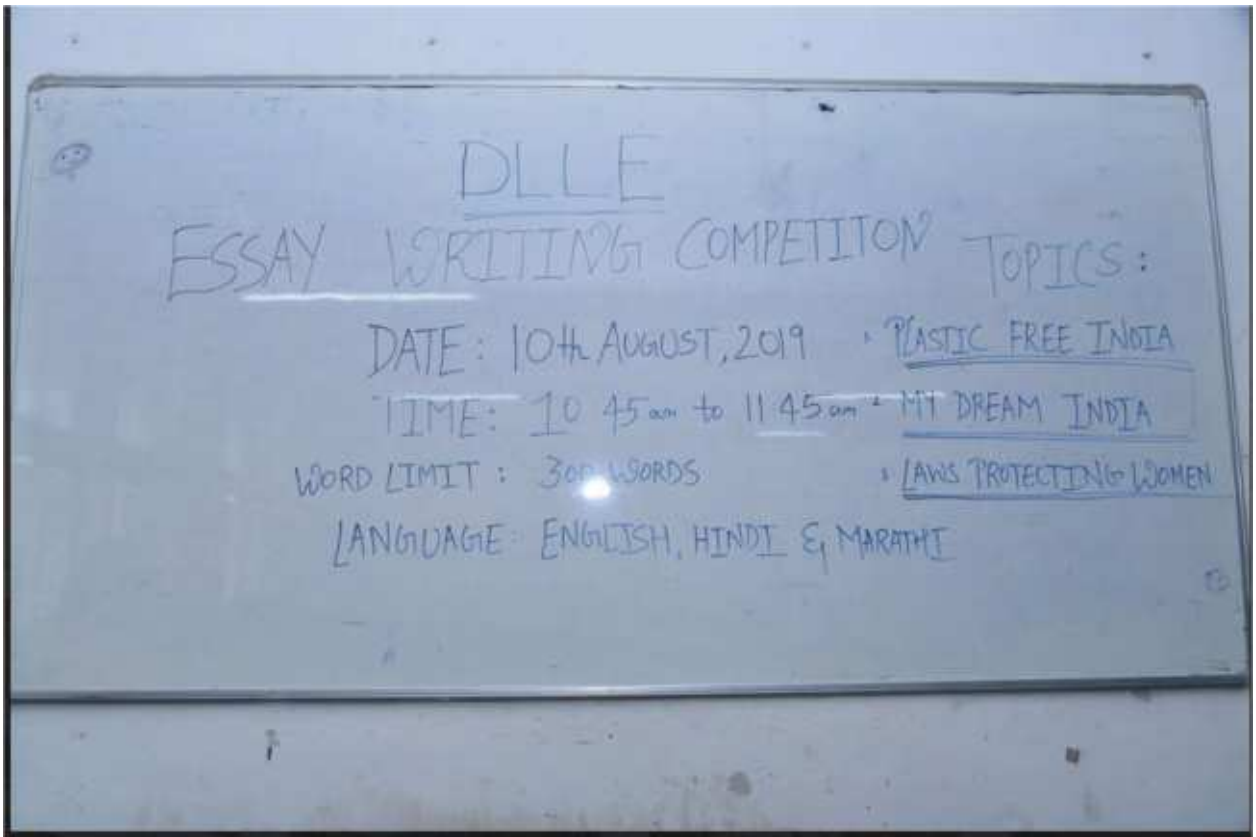 DLLE
ESSAY WRITING COMPETITON
DATE: 10th AUGUST, 2019
TIME: 10 45 am to 11 45 am
WORD LIMIT: 300 WORDS
LANGUAGE: ENGLISH, HINDI & MARATHI
TOPICS:
PLASTIC FREE INDIA
MY DREAM INDIA
LAWS PROTECTING WOMEN